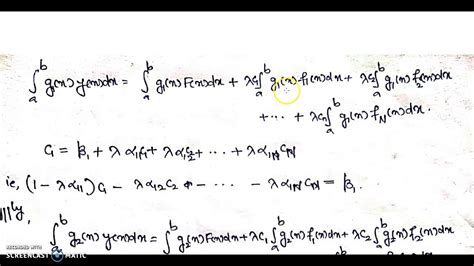 ∫ₐᵇ g₁(x) y(x)dx = ∫ₐᵇ g₁(x) F(x)dx + λc₁∫ₐᵇ g₁(x) f₁(x)dx + λc₂∫ₐᵇ g₁(x) f₂(x)dx
+ ··· + λc_N∫ₐᵇ g₁(x) f_N(x)dx.
c₁ = β₁ + λα₁₁c₁ + λα₁₂c₂ + ··· + λα₁N c_N
ie, (1 - λα₁₁) c₁ - λα₁₂ c₂ - ··· - λα₁N c_N = β₁.
|||ly,
∫ₐᵇ g₂(x) y(x)dx = ∫ₐᵇ g₂(x) F(x)dx + λc₁∫ₐᵇ g₂(x) f₁(x)dx + λc₂∫ₐᵇ g₂(x) f₂(x)dx
RECORDED WITH
SCREENCAST MATIC